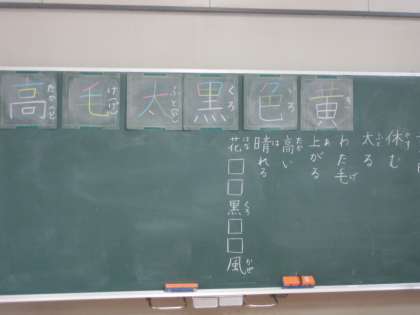 黄
色
いろ
黒
くろ
太
毛
高
休む
太る
ふと
わた毛
げ
上がる
あ
高い
たか
晴れる
は
花□□黒□□風
はな
くろ
かぜ